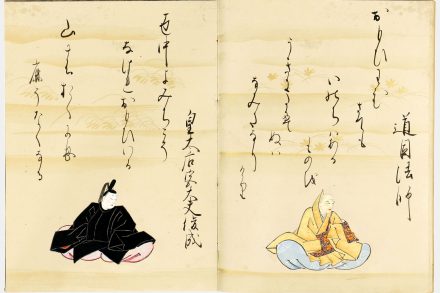 道因法師
おもひわひ
さても
いのちはある
ものを
うきにたへぬは
なみたなりけり
皇太后宮大夫俊成
世中よみちこそ
なけれおもひいる
山のおくにも
鹿そなくなる